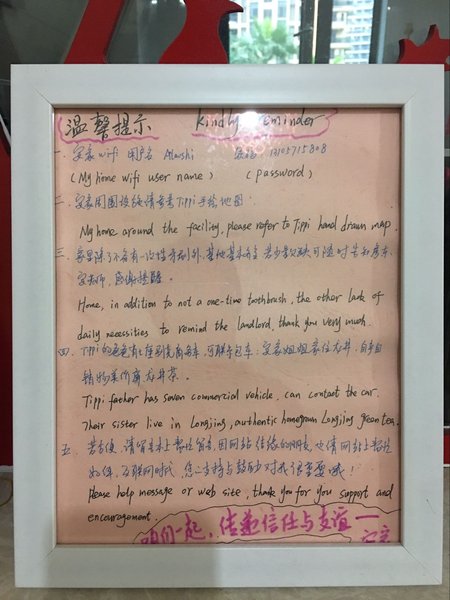 温馨提示 kindly reminder
一、安家wifi 用户名 Alloushi 密码: 13105715808
(My home wifi user name) (password)
二、安家周围设施请参考Tippi手绘地图.
My home around the facility, please refer to Tippi hand drawn map.
三、家里除了不含有一次性牙刷外,其他基本齐全 若少量欠缺可随时告知房东
安老师,感谢提醒。
Home, in addition to not a one-time toothbrush, the other lack of
daily necessities to remind the landlord, thank you very much.
四、Tippi的爸爸有七座别克商务车,可联系包车。安家姐姐家住龙井,自家自
销物美价廉龙井茶。
Tippi father has seven commercial vehicle, can contact the car.
Their sister live in Longjing, authentic homegrown Longjing green tea.
五、若方便,请留言本上帮忙留言,因网站结缘的朋友,也请网站上帮忙
好评,互联网时代,您的支持与鼓励对我很重要哦!
Please help message or web site, thank you for you support and
encouragement.
咱们一起,传递信任与友谊